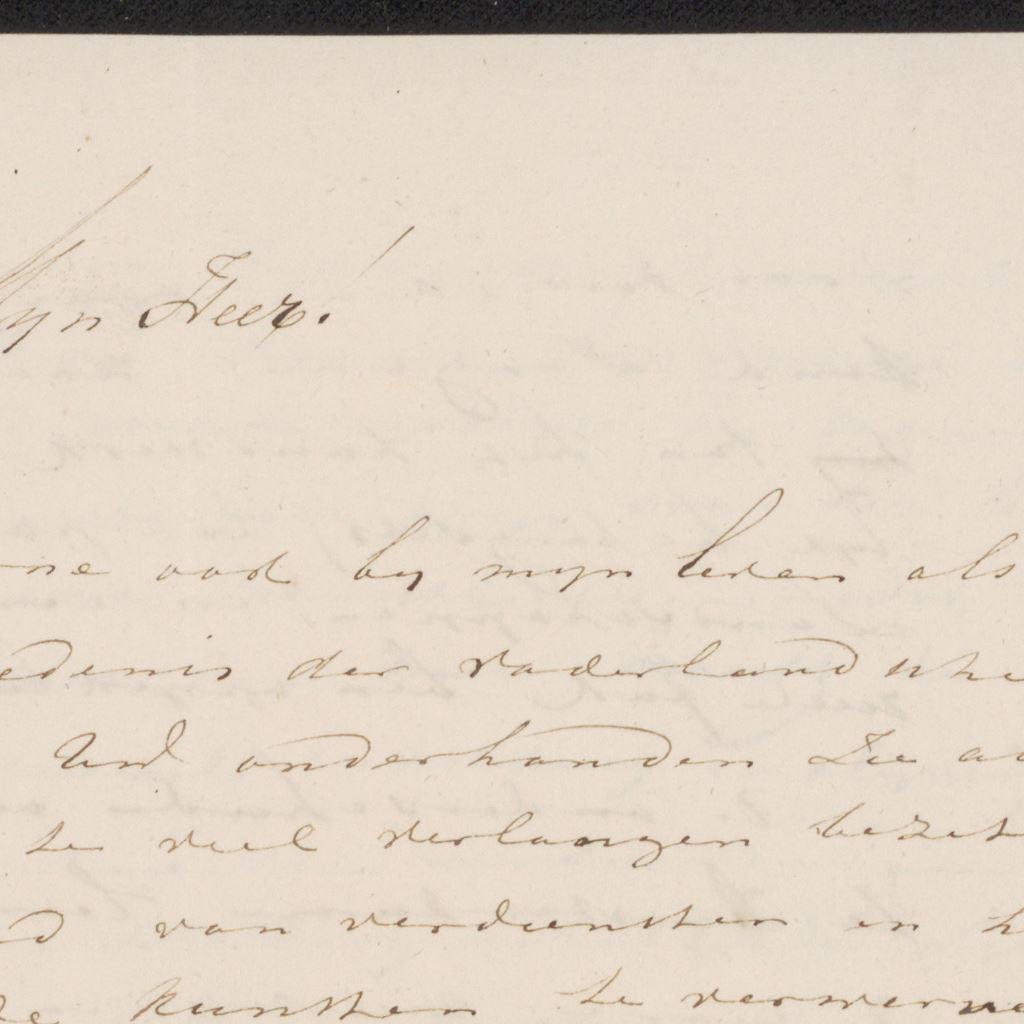 Myn Heer!
ne ook by myn leven als
edenis der vaderlandsche
Uwl onderhanden zie
te veel verlangen bezit
van verdiensten en
kunsten te verwerve